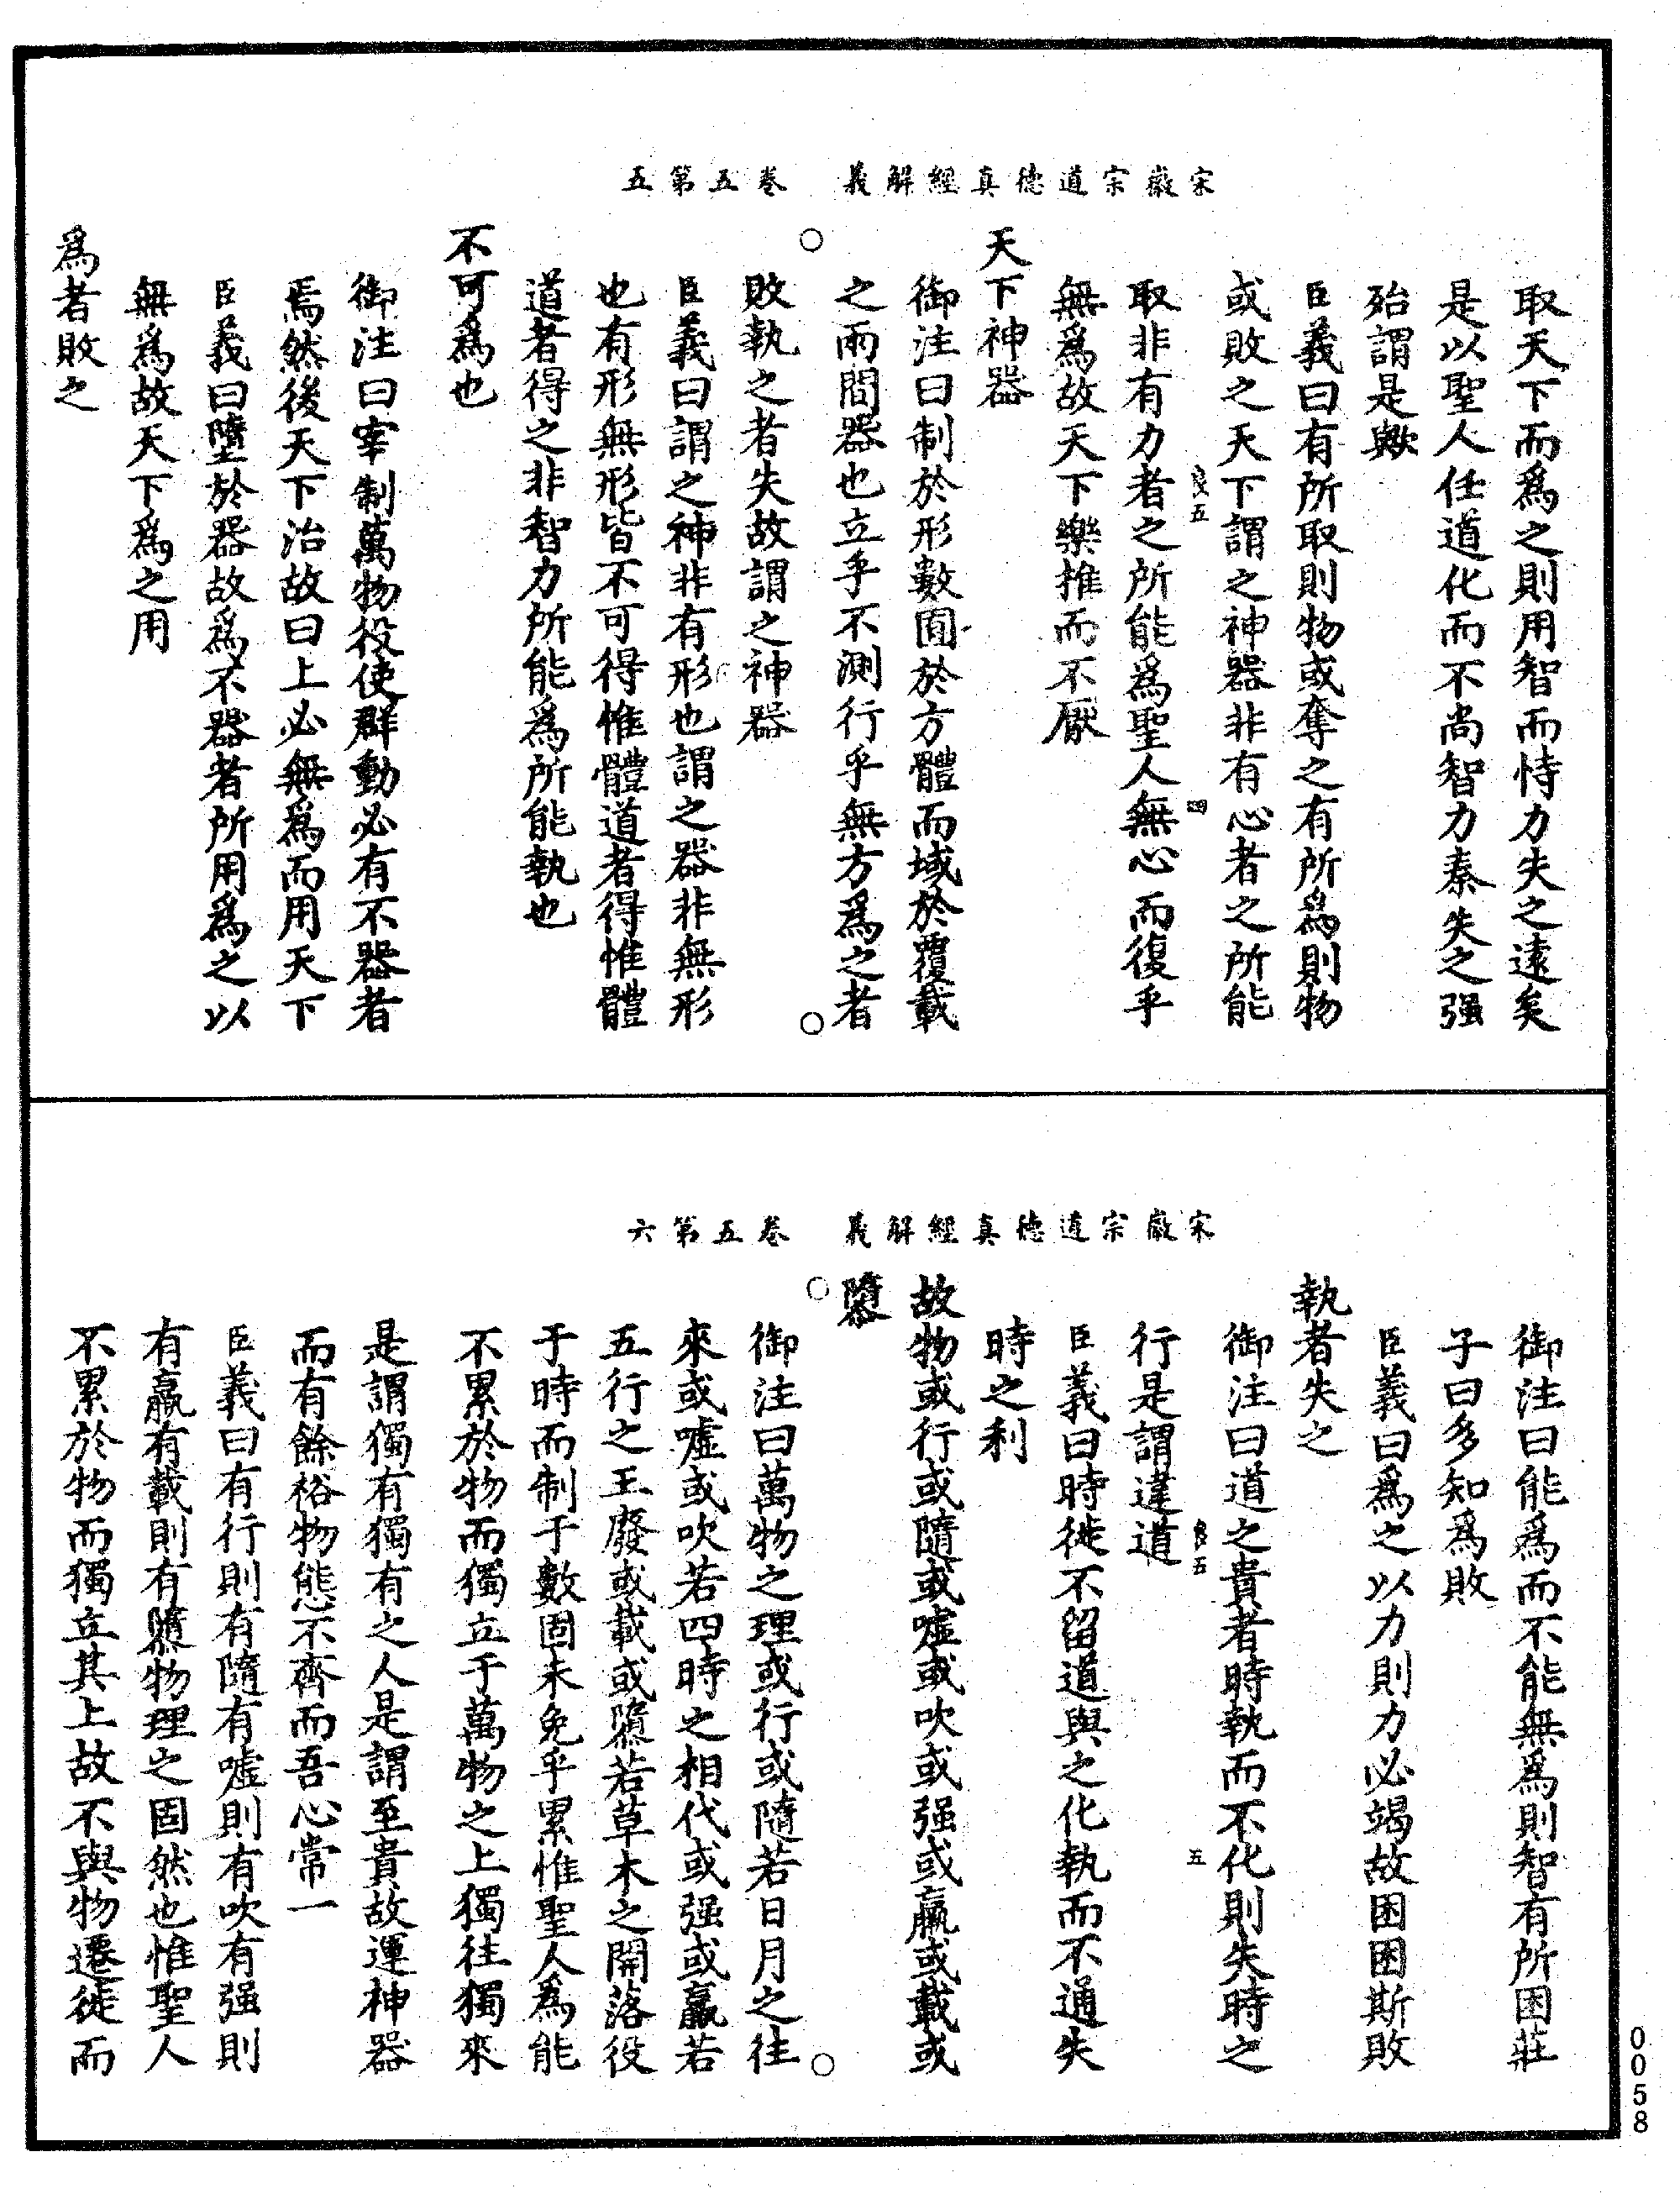 宋徽宗道德真經解義　卷五第五
取天下而爲之則用智而恃力失之遠矣
是以聖人任道化而不尚智力秦失之强
殆謂是歟
臣義曰有所取則物或奪之有所爲則物
或敗之天下謂之神器非有心者之所能
良五　四
取非有力者之所能爲聖人無心而復乎
無爲故天下樂推而不厭
天下神器
御注曰制於形數囿於方體而域於覆載
之兩間器也立乎不測行乎無方爲之者
敗執之者失故謂之神器
臣義曰謂之神非有形也謂之器非無形
也有形無形皆不可得惟體道者得惟體
道者得之非智力所能爲所能執也
不可爲也
御注曰宰制萬物役使群動必有不器者
焉然後天下治故曰上必無爲而用天下
臣義曰墮於器故爲不器者所用爲之以
無爲故天下爲之用
爲者敗之
宋徽宗道德真經解義　卷五第六
御注曰能爲而不能無爲則智有所困莊
子曰多知爲敗
臣義曰爲之以力則力必竭故困困斯敗
執者失之
御注曰道之貴者時執而不化則失時之
良五　五
行是謂違道
臣義曰時徙不留道與之化執而不通失
時之利
故物或行或隨或噓或吹或强或羸或載或
隳
御注曰萬物之理或行或隨若日月之往
來或噓或吹若四時之相代或强或羸若
五行之王廢或載或隳若草木之開落役
于時而制于數固未免乎累惟聖人爲能
不累於物而獨立于萬物之上獨往獨來
是謂獨有獨有之人是謂至貴故運神器
而有餘裕物態不齊而吾心常一
臣義曰有行則有隨有噓則有吹有强則
有羸有載則有隳物理之固然也惟聖人
不累於物而獨立其上故不與物遷徙而
0058